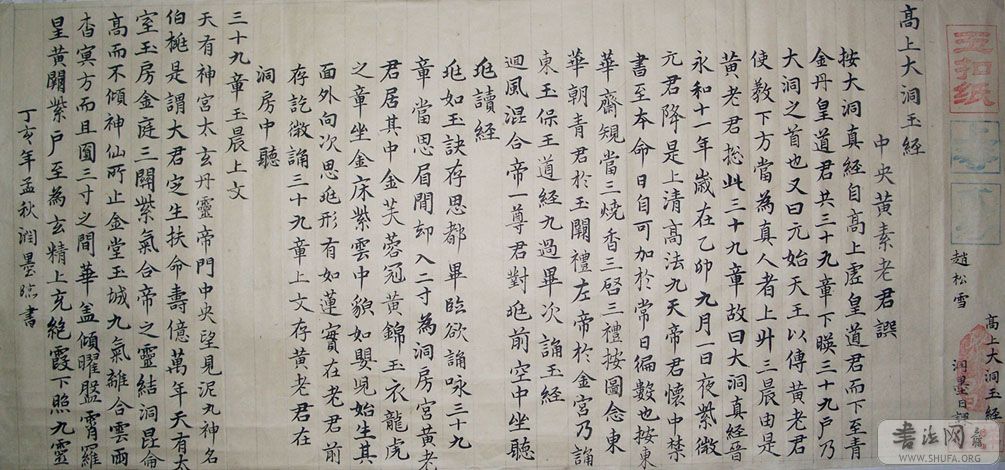 高上大洞玉經
洞墨日課
趙松雪
五扣纸
高上大洞玉經
中央黃素老君譔
按大洞真經自高上虛皇道君而下至青
金丹皇道君共三十九章下暎三十九戶乃
大洞之首也又曰元始天王以傳黃老君
使教下方當為真人者上此三晨由是
黃老君揔此三十九章故曰大洞真經晉
永和十一年歲在乙卯九月一日夜紫微
元君降是上清高法九天帝君懷中禁
書至本命日自可加於常日徧數也按東
華齋規當三燒香三啓三禮按圖念東
華朝青君於玉闕禮左帝於金宮乃誦
東玉保王道經九過畢次誦玉經
迴風混合帝一尊君對兆前空中坐聽
兆讀經
兆如玉訣存思都畢臨欲誦咏三十九
章當思眉間却入二寸為洞房宮黃老
君居其中金芙蓉冠黃錦玉衣龍虎
之章坐金床紫雲中貌如嬰兒始生其
面外向次思兆形有如蓮實在老君前
存訖微誦三十九章上文存黃老君在
洞房中聽
三十九章玉晨上文
天有神宮太玄丹靈帝門中央望見泥丸神名
伯桃是謂大君定生扶命壽億萬年天有太
室玉房金庭三關紫氣合帝之靈結洞昆侖
高而不傾神仙所止金堂玉城九氣離合雲雨
杳冥方而且圓三寸之間華盖傾曜盤霄羅
皇黃闕紫戶至為玄精上充絕霞下照九靈
丁亥年孟秋潤墨臨書
书法网
WWW.SHUFA.ORG